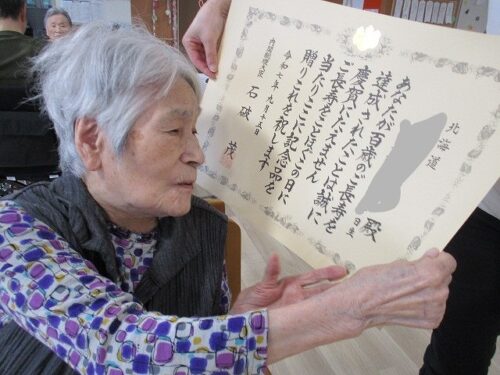 北海道
殿
日生
あなたが百歳のご長寿を
達成されたことは誠に
慶賀にたえません
ご長寿をことほぎこの日に
当たりここに記念品を
贈りこれを祝します
令和七年九月十五日
内閣総理大臣 石破 茂